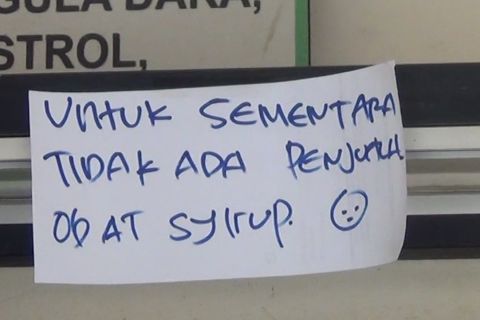 GULA DARA,
STROL,
UNTUK SEMENTARA
TIDAK ADA PENJUALA
OBAT SYIRUP.